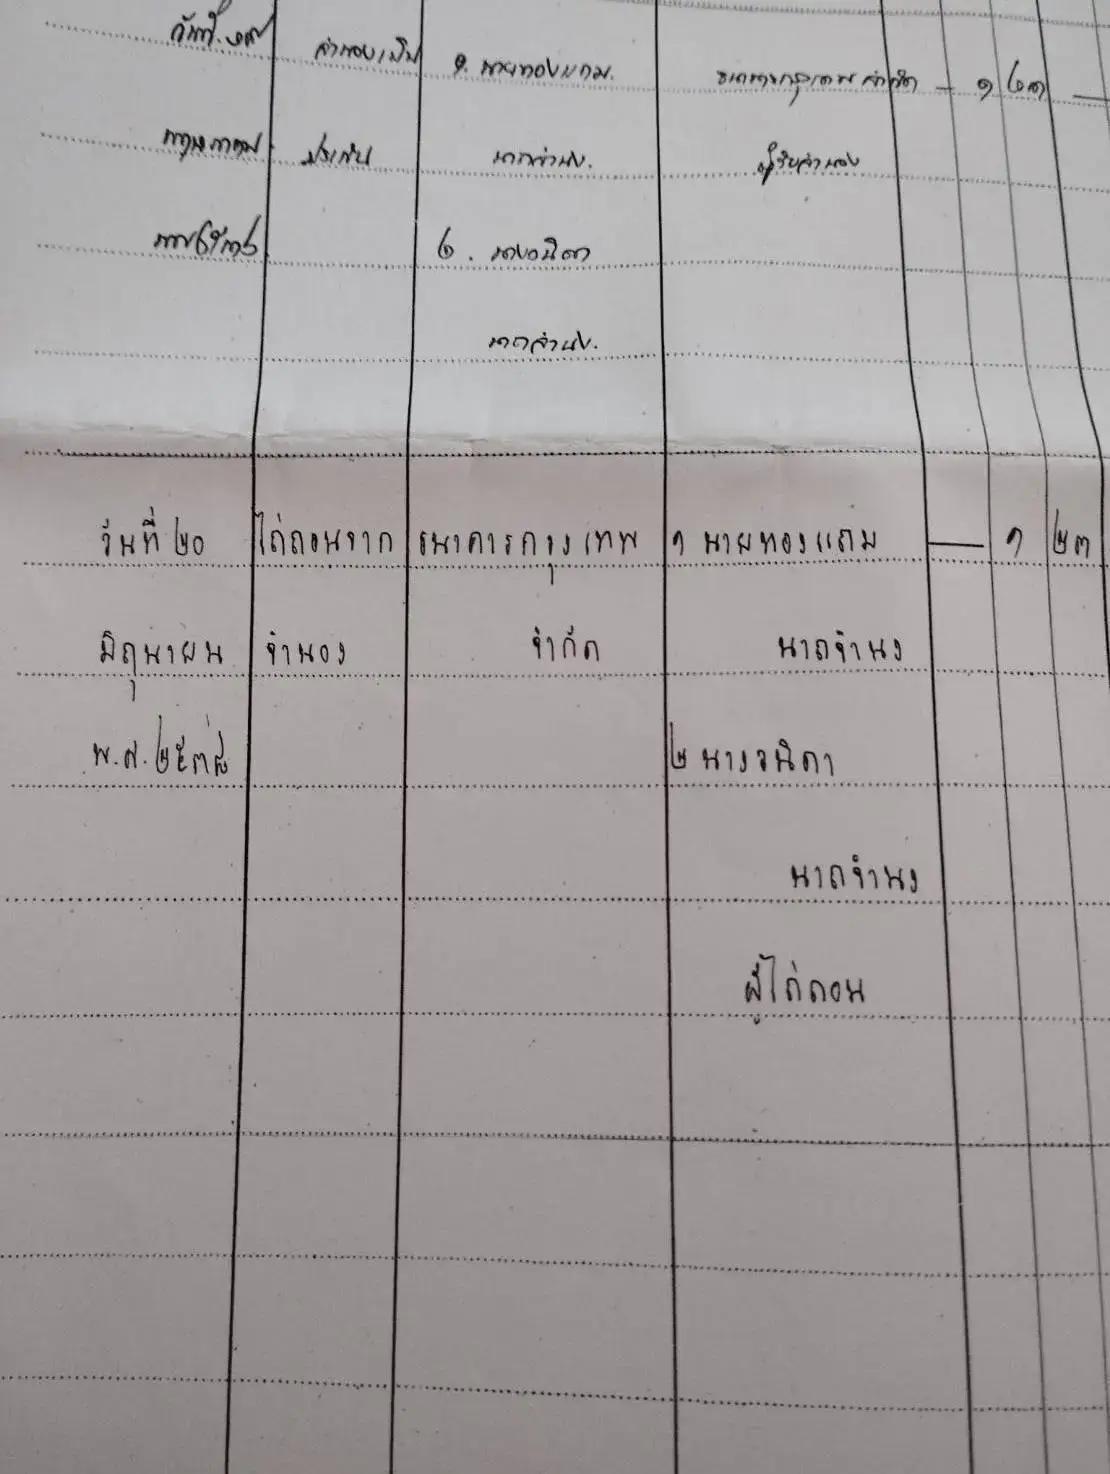 วันที่ ๑๙ จำนองเป็น ๑. นายทองแถม. ธนาคารกรุงเทพ จำกัด — ๑ ๒๓ —
พฤษภาคม ประกัน นาถจำนง. ผู้รับจำนอง
๒. นางวนิดา
นาถจำนง.
วันที่ ๒๐ ไถ่ถอนจาก ธนาคารกรุงเทพ ๑ นายทองแถม — ๑ ๒๓
มิถุนายน จำนอง จำกัด นาถจำนง
พ.ศ. ๒๕๓๘ ๒ นางวนิดา
นาถจำนง
ผู้ไถ่ถอน